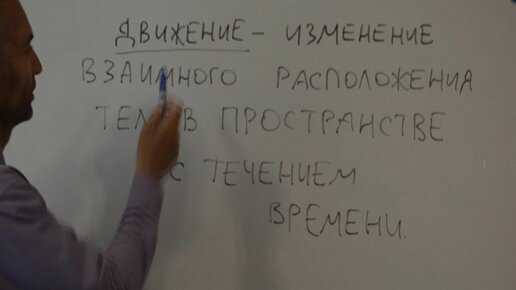 ДВИЖЕНИЕ – ИЗМЕНЕНИЕ
ВЗАИМНОГО РАСПОЛОЖЕНИЯ
ТЕЛ В ПРОСТРАНСТВЕ
С ТЕЧЕНИЕМ
ВРЕМЕНИ.